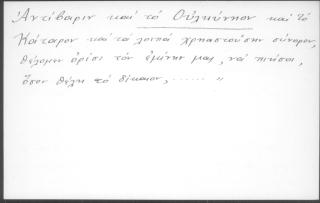 Ἀντίβαριν καὶ τὸ Οὐλκύνηον καὶ τὸ
Κάταρον καὶ τὰ λοιπὰ χρηαστούσην σύνορον,
θέλομεν ὁρίσι τὸν ἐμίνην μας, νὰ πιάσοι,
ὅσον θέλη τὸ δίκαιον, ...... "